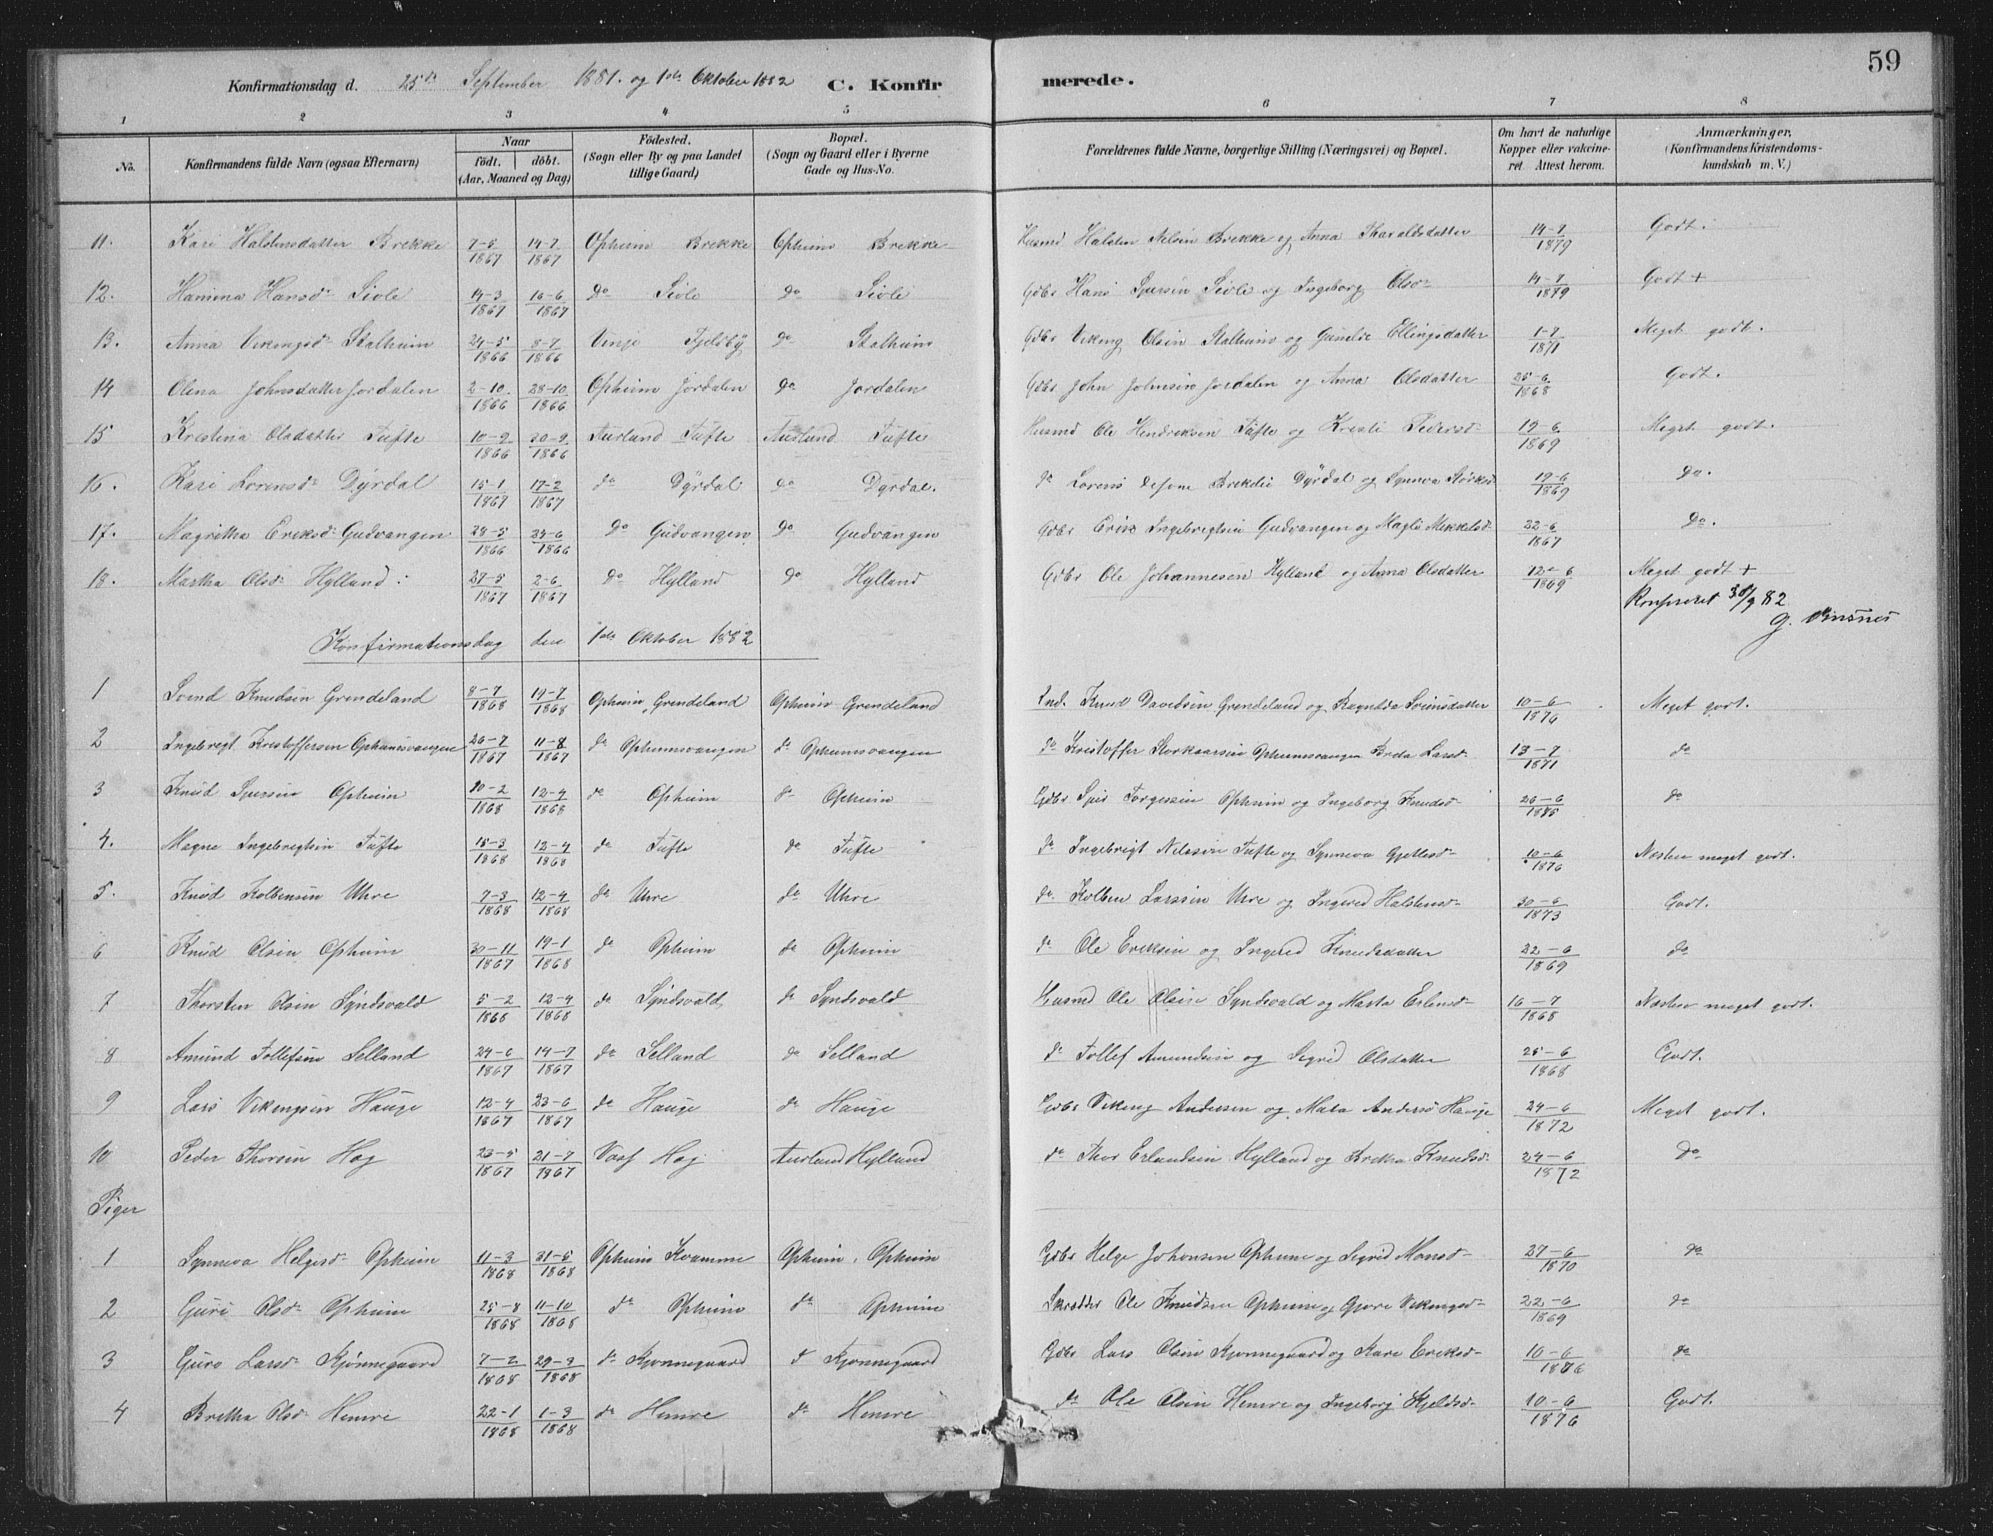 59
Konfirmationsdag d. 25de September 1881. og 1ste Oktober 1882 C. Konfirmerede.
1 2 3 4 5 6 7 8
No. Konfirmandens fulde Navn (ogsaa Efternavn) Naar födt. döbt. (Aar, Maaned og Dag) Födested. (Sogn eller By og paa Landet tillige Gaard) Bopæl. (Sogn og Gaard eller i Byerne Gade og Hus-No. Forældrenes fulde Navne, borgerlige Stilling (Næringsvei) og Bopæl. Om havt de naturlige Kopper eller vakcineret. Attest herom. Anmærkninger. (Konfirmandens Kristendomskundskab m. V.)
11. Kari Halstensdatter Brekke 7-5 1867 14-7 1867 Opheim Brekke Opheim Brekke Husmd Halsten Nelsin Brekke og Anna Tharalbsdatter 14-7 1879 Godt.
12. Hanina Hansdr Sivle 14-3 1867 16-6 1867 do Sivle do Sivle Gdbr Hans Sjursin Sivle og Ingeborg Olsdr 14-7 1879 Godt +
13. Anna Vikingsdr Stalheim 24-5 1866 8-7 1866 Vinje Fjeldby do Stalheim Gdbr Viking Olsin Stalheim og Gunilde Ellingsdatter 1-7 1871 Meget godt.
14 Olina Johnsdatter Jordalen 2-10 1866 28-10 1866 Opheim Jordalen do Jordalen Gdbr John Johnsin Jordalen og Anna Olsdatter 25-6 1868 Godt.
15 Kristina Olsdatter Tufte 10-9 1866 30-9 1866 Aurland Tufte Aurland Tufte Husmd Ole Hendriksen Tufte og Kristi Pedersdr 19-6 1869 Meget godt.
16. Kari Lorensdr Dyrdal 15-1 1867 17-2 1867 do Dyrdal do Dyrdal. do Lorens Brekke Dyrdal og Synneva 19-6 1869 Do.
17. Magritha Eriksdr Gudvangen 28-5 1866 24-6 1866 do Gudvangen do Gudvangen Gdbr Erik Ingebregtsin Gudvangen og Magli Mikkelsdr 22-6 1867 Do.
18. Martha Olsdr Hylland 27-5 1867 2-6 1867 do Hylland do Hylland Gdbr Ole Johannesen Hylland og Anna Olsdatter 12-6 1869 Meget godt +
Konfereret 30/9 82
Konfirmationsdag den 1ste Oktober 1882
1 Svend Knudsin Grendeland 8-7 1868 19-7 1868 Opheim, Grendeland Opheim Grendeland Ind. Knud Davidsin Grendeland og Ragnilda Svensdatter 10-6 1876 Meget godt.
2 Ingebrigt Kristoffersen Ophemsvangen 26-7 1867 11-8 1867 do Ophemsvangen do Ophemsvangen do Kristoffer Storkaarsin Ophemsvangen Breta Larsdr 13-7 1871 do
3 Knud Sjursin Opheim 20-2 1868 12-4 1868 do Opheim do Opheim Gdbr Sjur Torgersin Opheim og Ingeborg Knudsdr 26-6 do
4. Magne Ingebregtsin Tufte 15-3 1868 12-4 1868 do Tufte do Tufte do Ingebrigt Nilssin Tufte og Synneva Gjetlesdr 10-6 1876 Næsten meget godt.
5. Knud Kolbensin Uhre 7-3 1868 12-4 1868 do Uhre do Uhre do Kolben Larssin Uhre og Ingerid Halstensdr 30-6 1873 Godt.
6 Knud Olsin Opheim 30-11 1867 19-1 1868 do Opheim do Opheim do Ole Eriksin og Ingerid Knudsdatter 22-6 1869 do
7 Thorsten Olsin Syndsvald 5-2 1868 12-4 1868 do Syndsvald do Syndsvald Husmd Ole Olsin Syndsvald og Marta Erlendsdr 16-7 1868 Næsten meget godt.
8 Amund Tollefsin Selland 24-6 1867 14-7 1867 do Selland do Selland do Tollef Amundsin og Sigrid Olsdatter 25-6 1868 Godt.
9 Lars Vikingsin Hauge 12-4 1867 23-6 1867 do Hauge do Hauge Gdbr Viking Andersen og Marta Andersdr Hauge 24-6 1872 Meget godt.
10 Peder Thorsin Hog 23-5 1867 21-7 1867 Voss Hog. Aurland Hylland do Thor Erlandsin Hylland og Bretha Knudsdr 24-6 1872 do
Piger
1 Synneva Helgesdr Opheim 11-3 1868 31-5 1868 Opheim Kvamme Opheim, Opheim Gdbr Helge Johansen Opheim og Sigrid Monsdr 27-6 1870 do
2 Guri Olsdr Opheim 25-8 1868 11-10 1868 do Opheim do Opheim Skrædder Ole Knudsen Opheim og Gjøre Vikingsdr 22-6 1869 do
3 Guro Larsdr Kjønnegaard 7-2 1868 29-3 1868 do Kjonnegaard do Kjonnegaard Gdbr Lars Olsin Kjonnegaard og Kari Eriksdr 10-6 1876 do
4 Bretha Olsdr Hemre 22-1 1868 1-3 1868 do Hemre do Hemre do Ole Olsin Hemre og Ingeborg Kjeldsdr 10-6 1876 Godt.